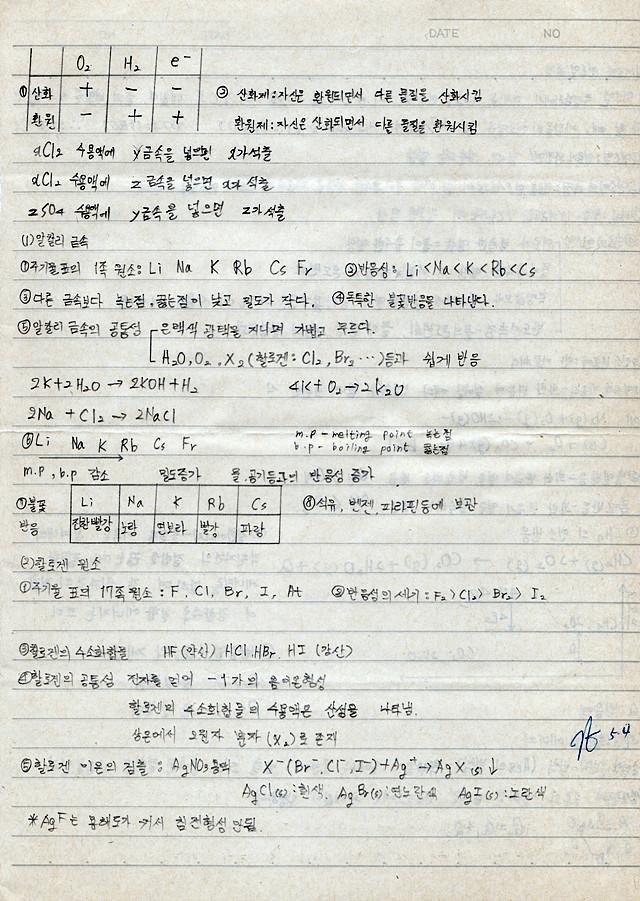 DATE NO
O₂ H₂ e⁻
① 산화 + − − ② 산화제:자신은 환원되면서 다른 물질을 산화시킴
환원 − + + 환원제:자신은 산화되면서 다른 물질을 환원시킴
xCl₂ 수용액에 y금속을 넣으면 x가 석출
xCl₂ 수용액에 z금속을 넣으면 x가 석출
zSO₄ 수용액에 y금속을 넣으면 z가 석출
(1)알칼리 금속
①주기율표의 1족 원소: Li Na K Rb Cs Fr ②반응성: Li<Na<K<Rb<Cs
③다른 금속보다 녹는점,끓는점이 낮고 밀도가 작다. ④독특한 불꽃반응을 나타낸다.
⑤알칼리 금속의 공통성 은백색 광택을 지니며 가볍고 무르다.
H₂O,O₂,X₂(할로겐: Cl₂, Br₂ …)등과 쉽게 반응
2K+2H₂O → 2KOH+H₂ 4K+O₂→2K₂O
2Na +Cl₂ → 2NaCl
⑥Li Na K Rb Cs Fr m.p - melting point 녹는점
b.p - boiling point 끓는점
m.p, b.p 감소 밀도증가 물,공기등과의 반응성 증가
⑦불꽃 Li Na K Rb Cs ⑧석유, 벤젠, 파라핀등에 보관
반응 진한빨강 노랑 연보라 빨강 파랑
(2)할로겐 원소
①주기율 표의 17족 원소: F, Cl, Br, I, At ②반응성의 세기: F₂>Cl₂>Br₂>I₂
③할로겐의 수소화합물 HF(약산) HCl,HBr, HI (강산)
④할로겐의 공통성 전자를 얻어 -1가의 음이온형성
할로겐의 수소화합물의 수용액은 산성을 나타냄.
상온에서 2원자 분자(X₂)로 존재
⑤할로겐 이온의 검출: AgNO₃용액 X⁻(Br⁻ Cl⁻,I⁻)+Ag⁺→AgX(s)↓
AgCl(s):흰색, AgBr(s):연노란색 AgI(s):노란색
*AgF는 용해도가 커서 침전형성 안됨.
5.4